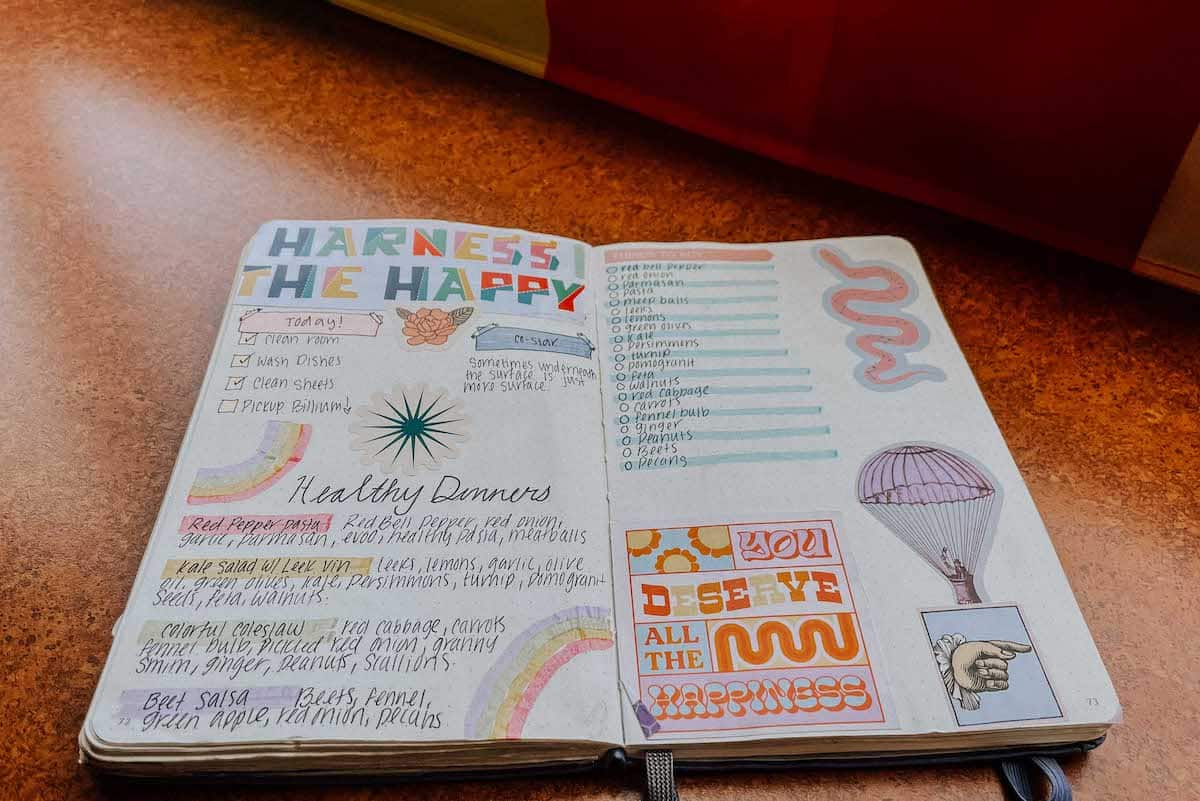 HARNESS
THE HAPPY
Today!
clean room
Wash Dishes
Clean sheets
Pickup Billium
co-star
Sometimes underneath
the surface is just
more surface.
Healthy Dinners
Red Pepper pasta Red Bell pepper, red onion,
garlic, Parmasan, evoo, healthy pasta, meatballs
Kale Salad w/ Leek Vin leeks, lemons, garlic, olive
oil, green olives, kale, persimmons, turnip, pomogranit
seeds, feta, walnuts.
Colorful Coleslaw red cabbage, carrots
fennel bulb, pickled red onion, granny
Smith, ginger, peanuts, scallions.
Beet Salsa Beets, fennel,
green apple, red onion, pecans
THINGS TO BUY
red bell pepper
red onion
Parmasan
pasta
meep balls
leeks
lemons
green olives
Kale
Persimmons
turnip
pomogranit
feta
walnuts
red cabbage
carrots
fennel bulb
ginger
Peanuts
Beets
Pecans
YOU
DESERVE
ALL
THE
HAPPINESS
73